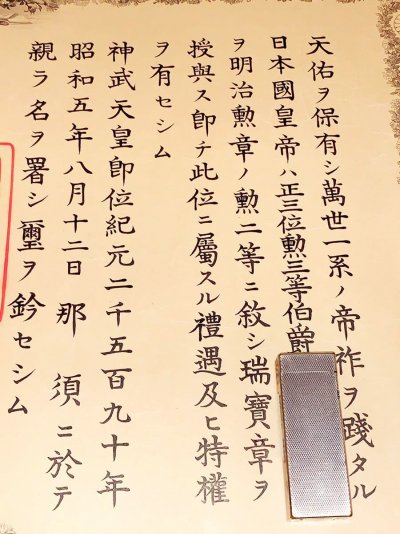 天佑ヲ保有シ萬世一系ノ帝祚ヲ踐タル
日本國皇帝ハ正三位勲三等伯爵
ヲ明治勲章ノ勲二等ニ敘シ瑞寶章ヲ
授與ス卽チ此位ニ屬スル禮遇及ヒ特權
ヲ有セシム
神武天皇卽位紀元二千五百九十年
昭和五年八月十二日那須ニ於テ
親ラ名ヲ署シ璽ヲ鈐セシム